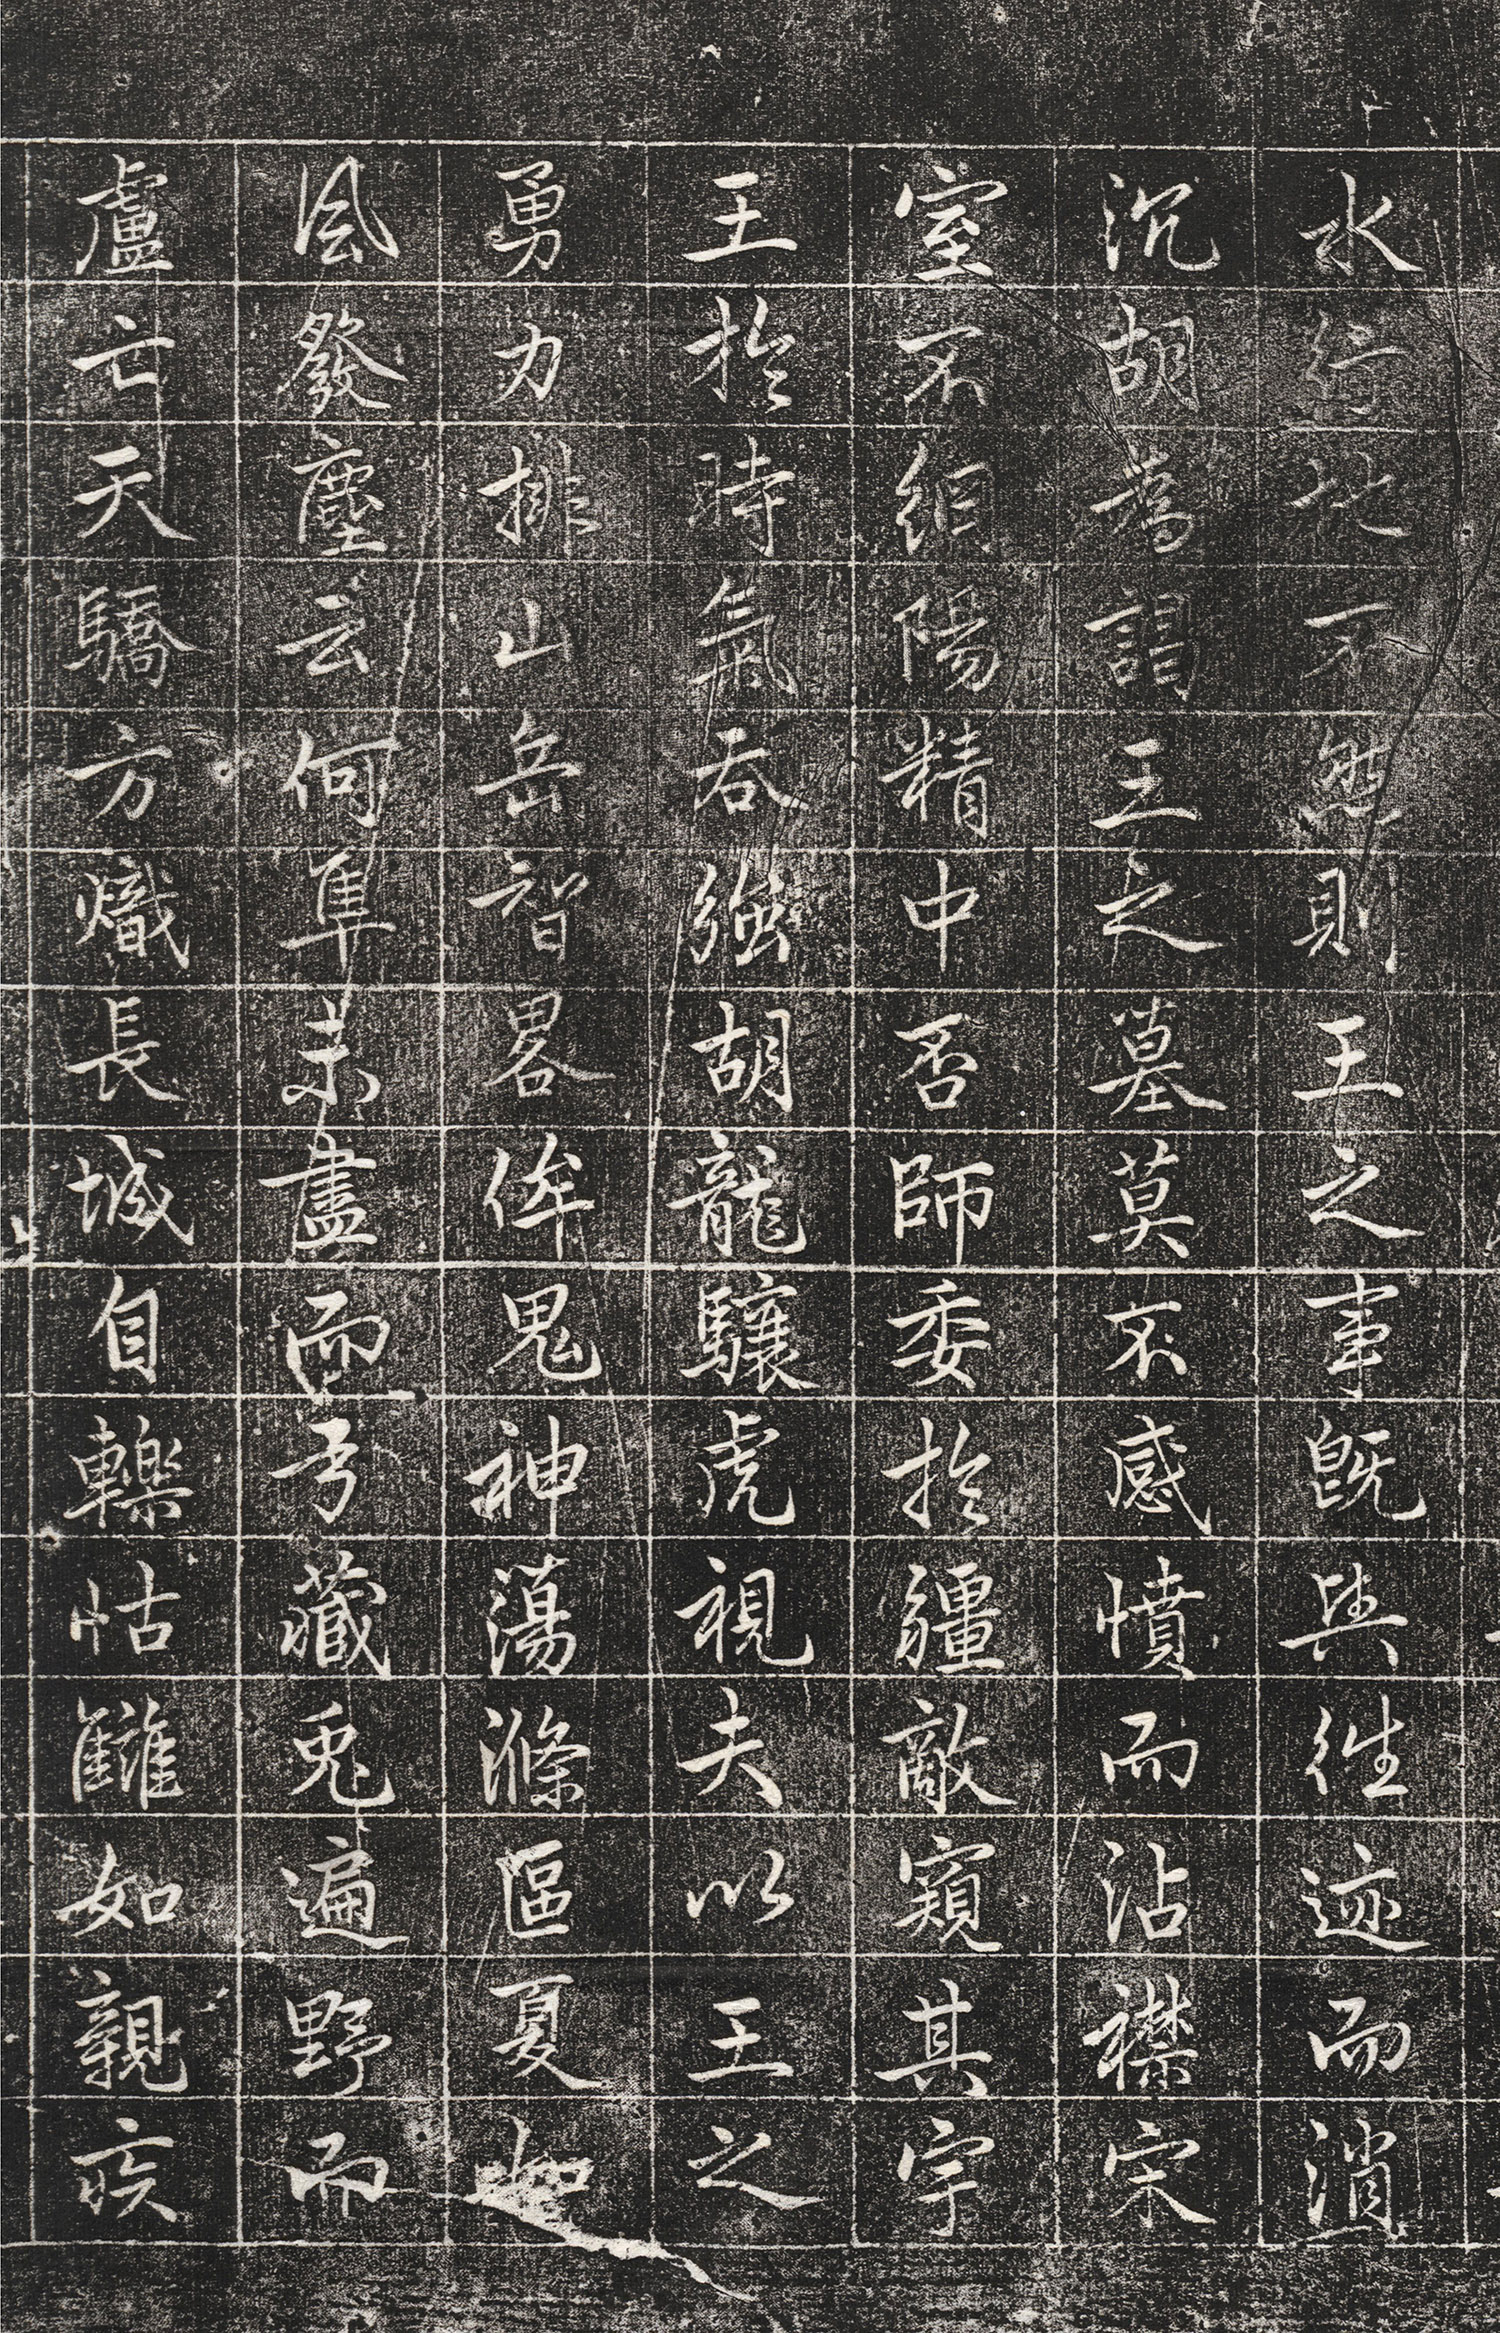 水行地不然則王之事既與往迹而消
沉胡爲謁王之墓莫不感憤而沾襟宋
室不綱陽精中否師委扵疆敵窺其宇
王扵時氣吞強胡龍驤虎視夫以王之
勇力排山岳智畧侔鬼神蕩滌區夏如
風發塵云何隼未盡而弓藏兎遍野而
盧亡天驕方熾長城自轢怙讎如親疾